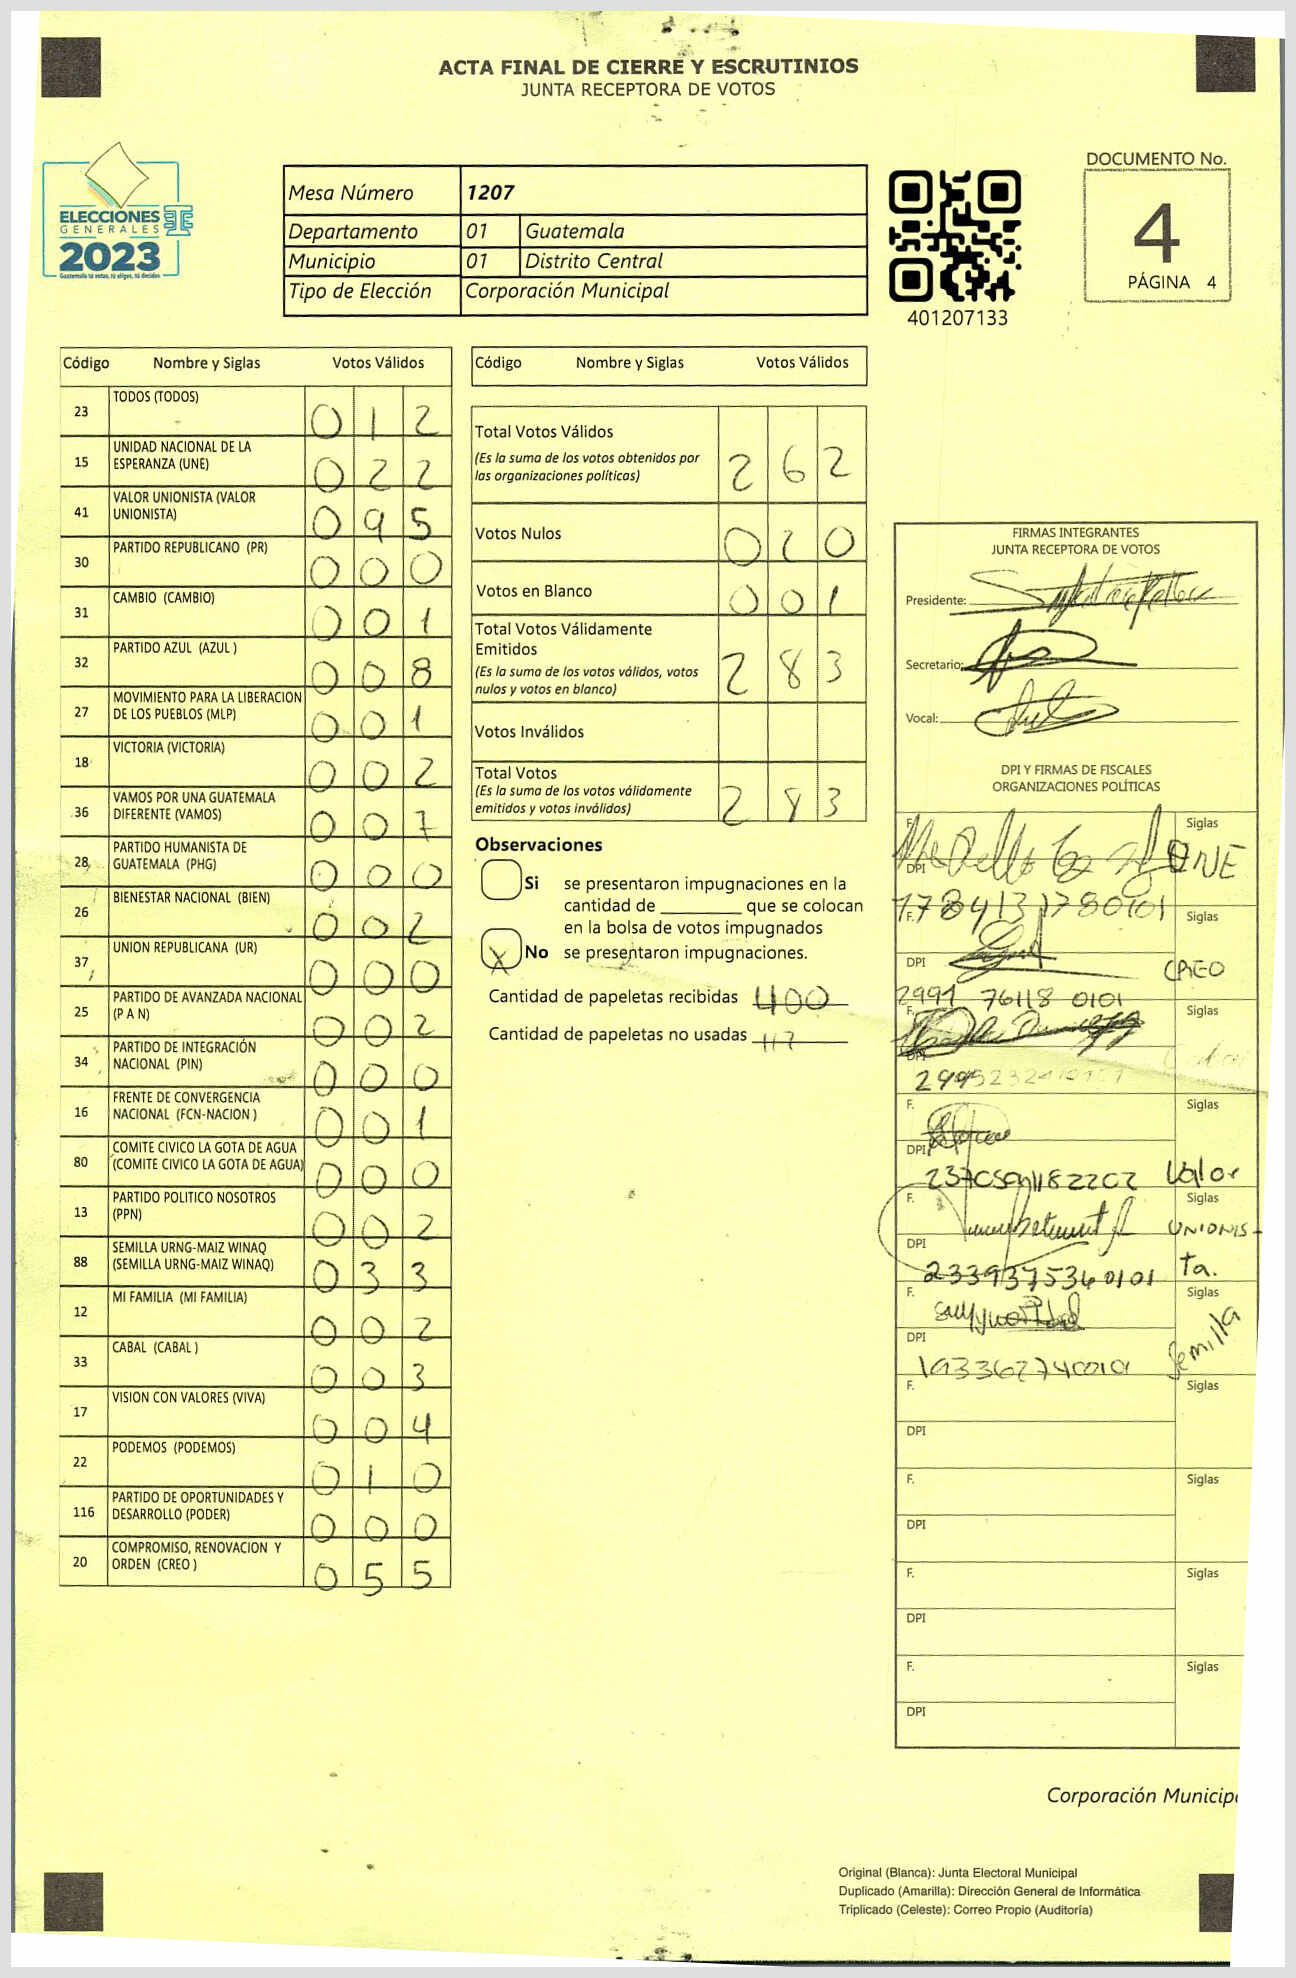 ACTA FINAL DE CIERRE Y ESCRUTINIOS
JUNTA RECEPTORA DE VOTOS
ELECCIONES
GENERALES
2023
Guatemala tú votas, tú eliges, tú decides
Mesa Número 1207
Departamento 01 Guatemala
Municipio 01 Distrito Central
Tipo de Elección Corporación Municipal
401207133
DOCUMENTO No.
4
PÁGINA 4
Código Nombre y Siglas Votos Válidos
23 TODOS (TODOS) 0 1 2
15 UNIDAD NACIONAL DE LA
ESPERANZA (UNE) 0 2 2
41 VALOR UNIONISTA (VALOR
UNIONISTA) 0 9 5
30 PARTIDO REPUBLICANO (PR) 0 0 0
31 CAMBIO (CAMBIO) 0 0 1
32 PARTIDO AZUL (AZUL ) 0 0 8
27 MOVIMIENTO PARA LA LIBERACION
DE LOS PUEBLOS (MLP) 0 0 1
18 VICTORIA (VICTORIA) 0 0 2
36 VAMOS POR UNA GUATEMALA
DIFERENTE (VAMOS) 0 0 7
28 PARTIDO HUMANISTA DE
GUATEMALA (PHG) 0 0 0
26 BIENESTAR NACIONAL (BIEN) 0 0 2
37 UNION REPUBLICANA (UR) 0 0 0
25 PARTIDO DE AVANZADA NACIONAL
(P A N) 0 0 2
34 PARTIDO DE INTEGRACIÓN
NACIONAL (PIN) 0 0 0
16 FRENTE DE CONVERGENCIA
NACIONAL (FCN-NACION ) 0 0 1
80 COMITE CIVICO LA GOTA DE AGUA
(COMITE CIVICO LA GOTA DE AGUA) 0 0 0
13 PARTIDO POLITICO NOSOTROS
(PPN) 0 0 2
88 SEMILLA URNG-MAIZ WINAQ
(SEMILLA URNG-MAIZ WINAQ) 0 3 3
12 MI FAMILIA (MI FAMILIA) 0 0 2
33 CABAL (CABAL ) 0 0 3
17 VISION CON VALORES (VIVA) 0 0 4
22 PODEMOS (PODEMOS) 0 1 0
116 PARTIDO DE OPORTUNIDADES Y
DESARROLLO (PODER) 0 0 0
20 COMPROMISO, RENOVACION Y
ORDEN (CREO ) 0 5 5
Código Nombre y Siglas Votos Válidos
Total Votos Válidos
(Es la suma de los votos obtenidos por
las organizaciones políticas) 2 6 2
Votos Nulos 0 2 0
Votos en Blanco 0 0 1
Total Votos Válidamente
Emitidos
(Es la suma de los votos válidos, votos
nulos y votos en blanco) 2 8 3
Votos Inválidos
Total Votos
(Es la suma de los votos válidamente
emitidos y votos inválidos) 2 8 3
Observaciones
Si se presentaron impugnaciones en la
cantidad de ________ que se colocan
en la bolsa de votos impugnados
X No se presentaron impugnaciones.
Cantidad de papeletas recibidas 400
Cantidad de papeletas no usadas 117
FIRMAS INTEGRANTES
JUNTA RECEPTORA DE VOTOS
Presidente:
Secretario:
Vocal:
DPI Y FIRMAS DE FISCALES
ORGANIZACIONES POLÍTICAS
F. Siglas
DPI UNE
1784131780101
F. Siglas
DPI CREO
2991 76118 0101
F. Siglas
DPI
F. Siglas
DPI
Valor
F. Siglas
DPI UNIONIS-
2339375360101 Ta.
F. Siglas
DPI Semilla
1933627400101
F. Siglas
DPI
F. Siglas
DPI
F. Siglas
DPI
F. Siglas
DPI
Corporación Municip
Original (Blanca): Junta Electoral Municipal
Duplicado (Amarilla): Dirección General de Informática
Triplicado (Celeste): Correo Propio (Auditoría)